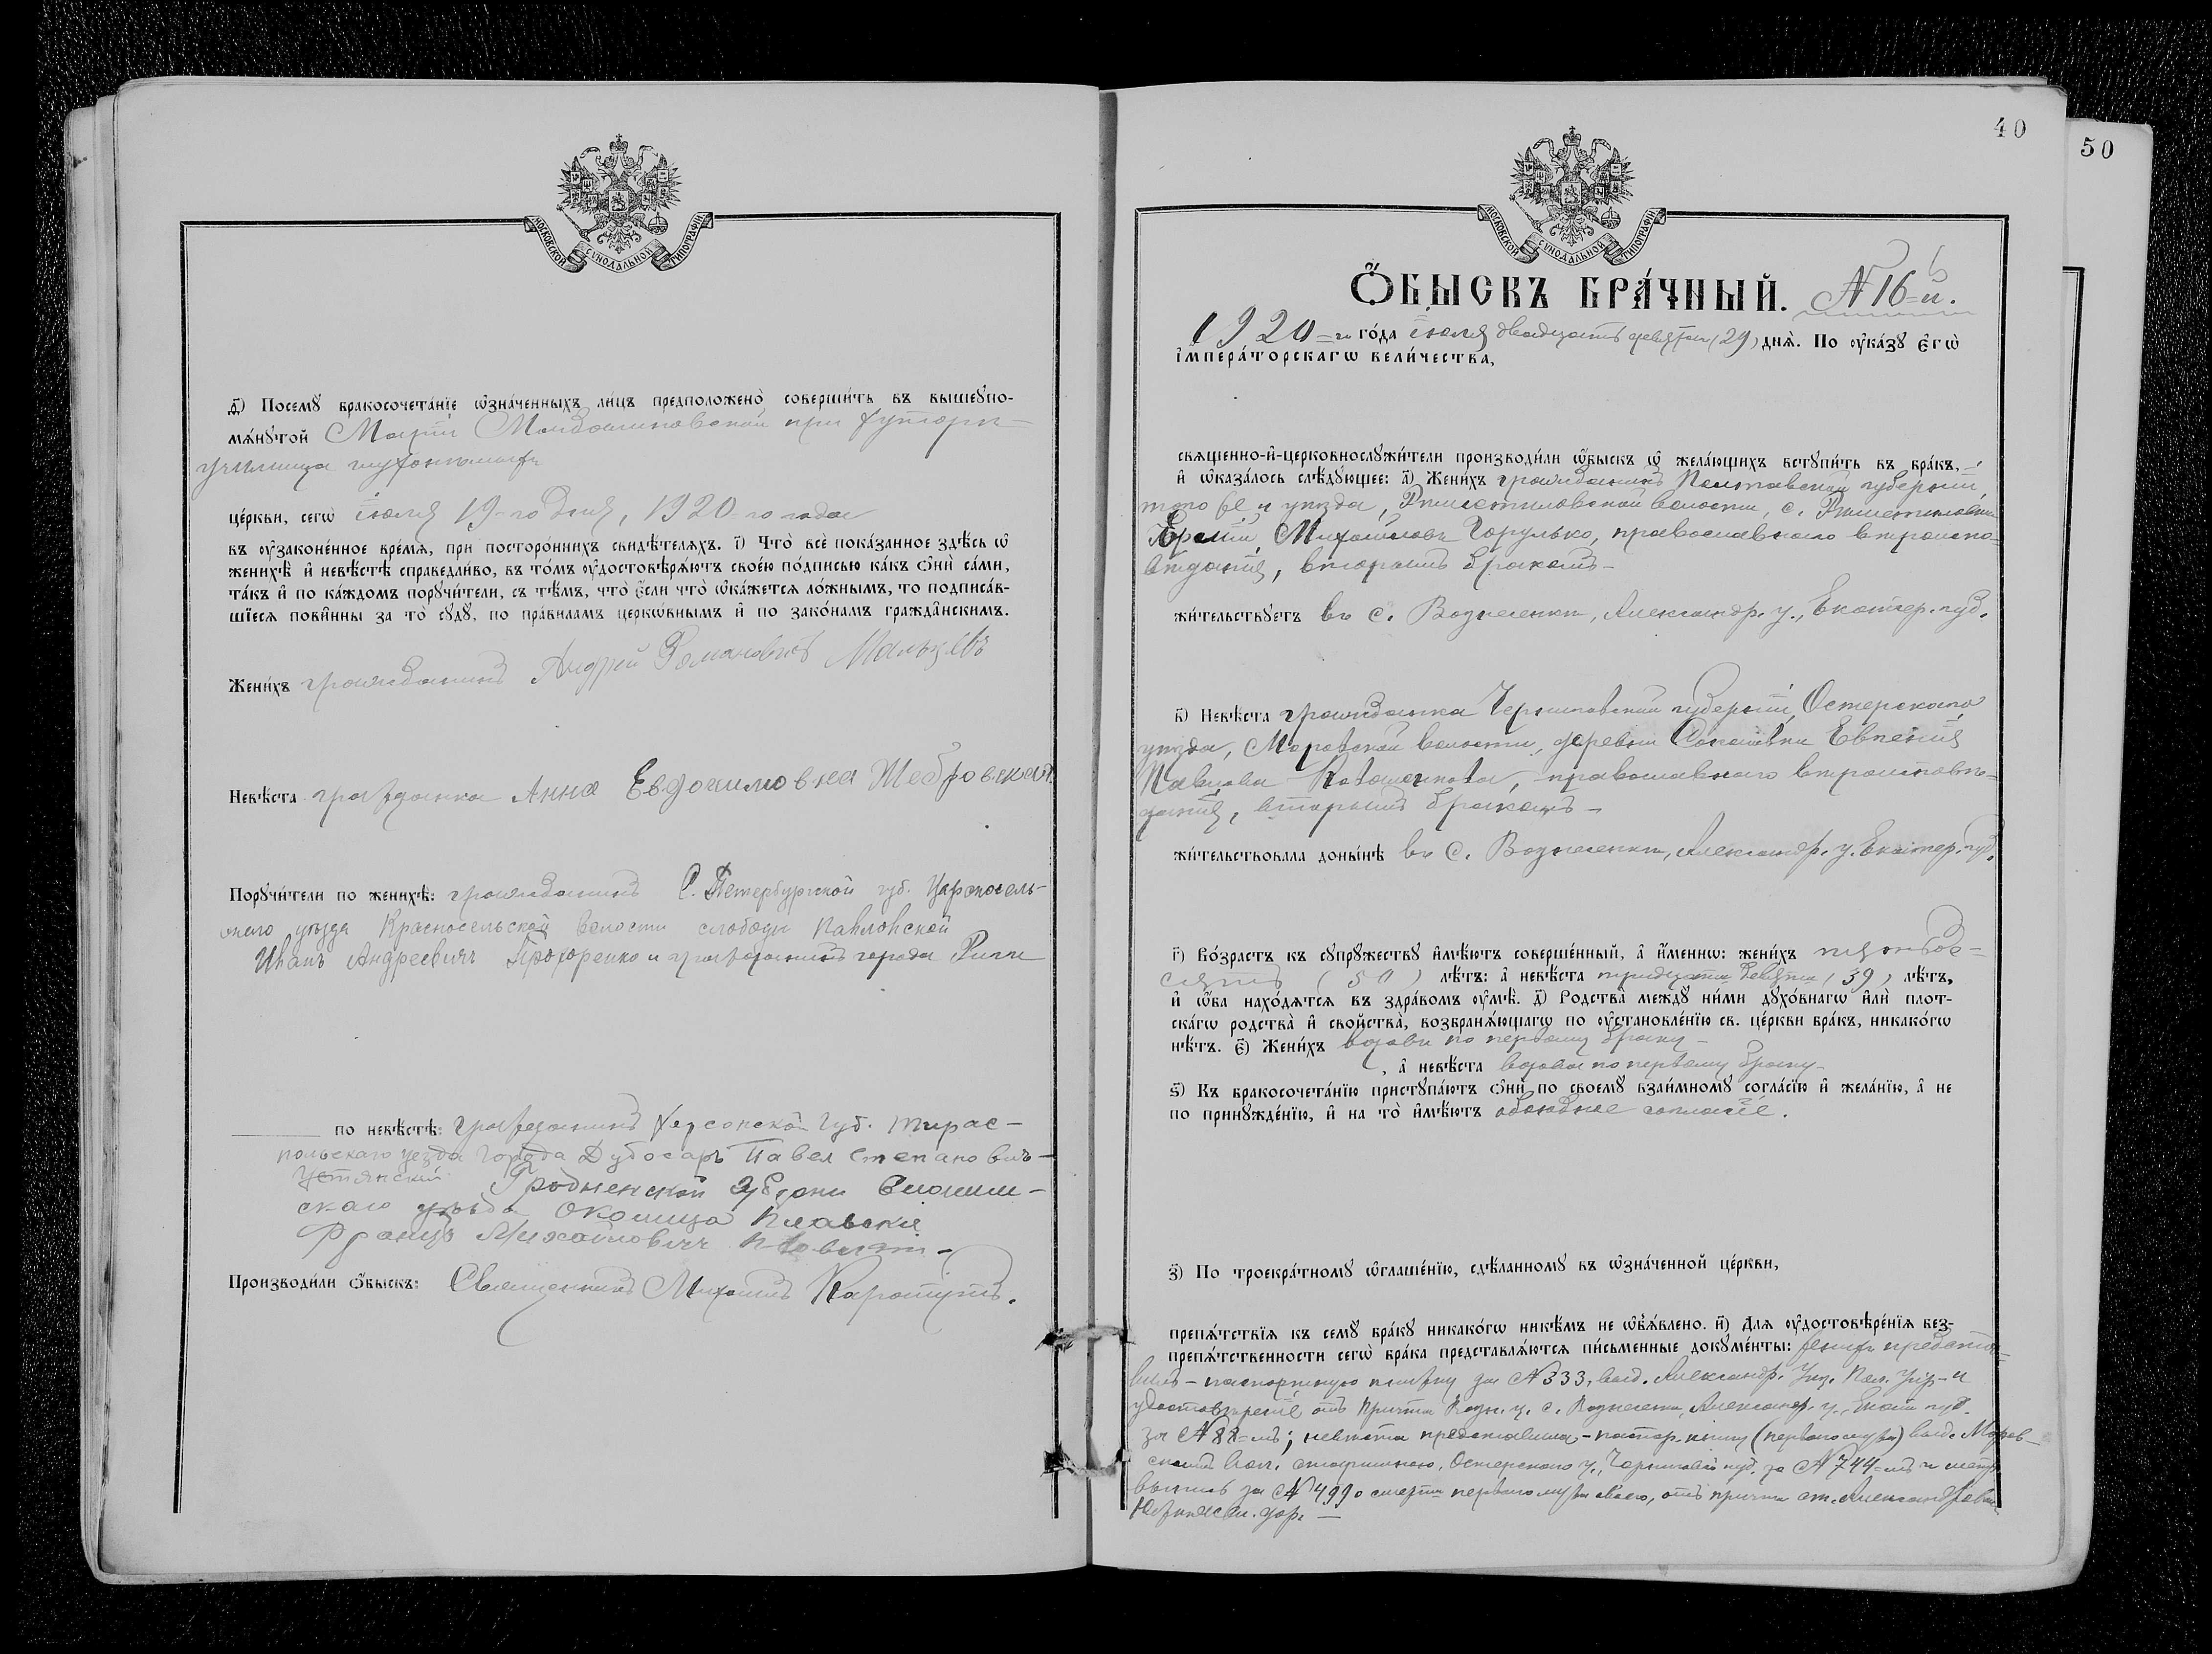 МОСКОВСКОЙ СѴНОДАЛЬНОЙ ТИПОГРАФІИ
д҃) Посемꙋ бракосочета́нїе ѡ҆зна́ченныхъ ли́цъ предположено̀ соверши́ть въ вышеꙋпо-
мѧ́нꙋтой Маріи Магдалиновской при хуторѣ
училища
це́ркви, сегѡ̀ іюля 19-го дня, 1920 го года
въ ᲂу҆законе́нное вре́мѧ, при посторо́ннихъ свидѣ́телѧхъ. і҃) Что̀ всѐ пока́занное здѣ́сь ѡ҆
женихѣ̀ и҆ невѣ́стѣ справедли́во, въ то́мъ ᲂу҆достовѣрѧ́ютъ свое́ю по́дписью ка́къ ѻ҆нѝ са́ми,
та́къ и҆ по ка́ждомъ порꙋчи́тели, съ тѣ́мъ, что̀ є҆́сли что̀ ѡ҆ка́жетсѧ ло́жнымъ, то подписа́в-
шїесѧ пови́нны за то̀ сꙋдꙋ̀, по пра́виламъ церко́внымъ и҆ по зако́намъ гражда́нскимъ.
Жени́хъ гражданинъ Андрей Романовичъ Мальцевъ
Невѣ́ста гражданка Анна Евдокимовна Жебровская.
Порꙋчи́тели по женихѣ̀: гражданинъ С. Петербургской губ. Царскосель-
скаго уезда Красносельской волости слободы Павловской
Иванъ Андреевичъ Прохоренко и гражданинъ города Риги
по невѣ́стѣ: гражданинъ Херсонской Губ. Тирас-
польскаго уезда Города Дубосаръ Павел Степановичъ
Устянский Гродненской Губерни Слоним-
скаго уезда Околица Плавски
Францъ Михайловичъ
Производи́ли ѻ҆́быскъ: Священникъ Михаилъ Карашутъ.
40
50
МОСКОВСКОЙ СѴНОДАЛЬНОЙ ТИПОГРАФІИ
Ѻ҆́БЫСКЪ БРА́ЧНЫЙ. N 16-й.
1920=го го́да іюля двадцать девятаго (29) днѧ̀. По ᲂу҆ка́зꙋ є҆гѡ̀
і҆мпера́торскагѡ вели́чества,
свѧще́нно-и҆-церковнослꙋжи́тели производи́ли ѻ҆́быскъ ѡ҆ жела́ющихъ встꙋпи́ть въ бра́къ,
и҆ ѡ҆каза́лось слѣ́дꙋющее: а҃) Жени́хъ гражданинъ Полтавской губерніи,
того же и уѣзда, Рѣшетиловской волости, с. Рѣшетиловки
Еремій Михайловъ Горулько, православнаго вѣроиспо-
вѣданія, вторымъ бракомъ –
жи́тельствꙋетъ въ с. Вознесенкѣ, Александр. у., Екатер. губ.
в҃) Невѣ́ста гражданка Черниговской губерніи, Остерскаго
уѣзда, Моровской волости, деревни Евгенія
Павлова, православнаго вѣроисповѣ-
данія, вторымъ бракомъ –
жи́тельствовала доны́нѣ въ с. Вознесенкѣ, Александр. у. Екатер. губ.
г҃) Во́зрастъ къ сꙋпрꙋ́жествꙋ и҆мѣ́ютъ соверше́нный, а҆ и҆́менно: жени́хъ пятьде-
сятъ (50) лѣ́тъ: а҆ невѣ́ста тридцати девяти (39) лѣ́тъ,
и҆ ѻ҆́ба нахо́дѧтсѧ въ здра́вомъ ᲂу҆мѣ̀. д҃) Родства̀ междꙋ̀ ни́ми дꙋхо́внагѡ и҆лѝ плот-
ска́гѡ родства̀ и҆ свойства̀, возбранѧ́ющагѡ по ᲂу҆становле́нїю св. це́ркви бра́къ, никако́гѡ
нѣ́тъ. є҃) Жени́хъ вдовъ по первому браку –
, а҆ невѣ́ста вдова по первому браку –
ѕ҃) Къ бракосочета́нїю пристꙋпа́ютъ ѻ҆нѝ по своемꙋ̀ взаи́мномꙋ согла́сїю и҆ жела́нїю, а҆ не
по принꙋжде́нїю, и҆ на то̀ и҆мѣ́ютъ обоюдное согласіе.
з҃) По троекра́тномꙋ ѡ҆глаше́нїю, сдѣ́ланномꙋ въ ѡ҆зна́ченной це́ркви,
препѧ́тствїѧ къ семꙋ̀ бра́кꙋ никако́гѡ никѣ́мъ не ѡ҆б̾ѧ́влено. и҃) Для ᲂу҆достовѣре́нїѧ без-
препѧ́тственности сегѡ̀ бра́ка представлѧ́ютсѧ пи́сьменные докꙋме́нты: женихъ предста-
вилъ – паспортную книжку за N 333, выд. Александр. Уѣз. Пол. Упр-и
удостовѣреніе отъ Причта Возн. ц. с. Вознесенки, Александр. у., Екат. губ.
за N 88-мъ; невѣста представила – паспор. книж. (перваго мужа) выд. Моров-
скимъ вол. старшиною, Остерскаго у., Черниговской губ. за N 744-мъ и метр.
выпись за N 499 о смерти перваго мужа своего, отъ причта ст. Александровки